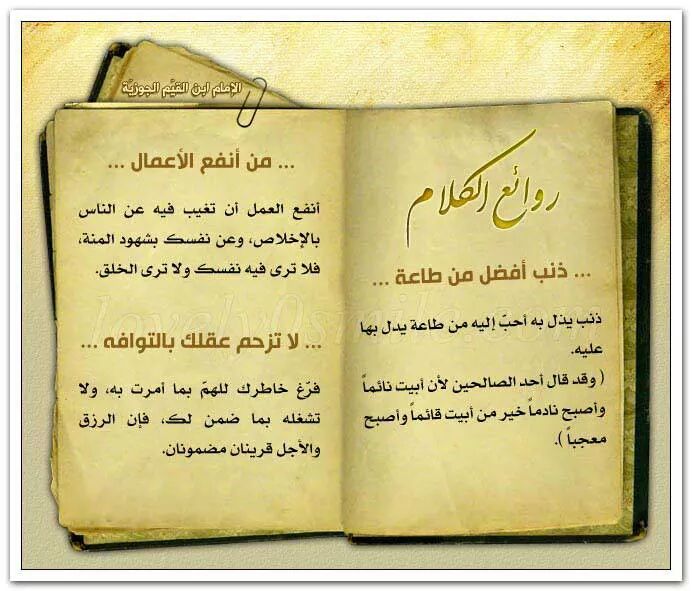 الإمام ابن القيّم الجوزيّة
روائع الكلام
... ذنب أفضل من طاعة ...
ذنب يذل به أحبّ إليه من طاعة يدل بها
عليه.
( وقد قال أحد الصالحين لأن أبيت نائماً
وأصبح نادماً خير من أبيت قائماً وأصبح
معجباً ).
... من أنفع الأعمال ...
أنفع العمل أن تغيب فيه عن الناس
بالإخلاص، وعن نفسك بشهود المنة،
فلا ترى فيه نفسك ولا ترى الخلق.
... لا تزحم عقلك بالتوافه ...
فرّغ خاطرك للهمّ بما أمرت به، ولا
تشغله بما ضمن لك، فإن الرزق
والأجل قرينان مضمونان.